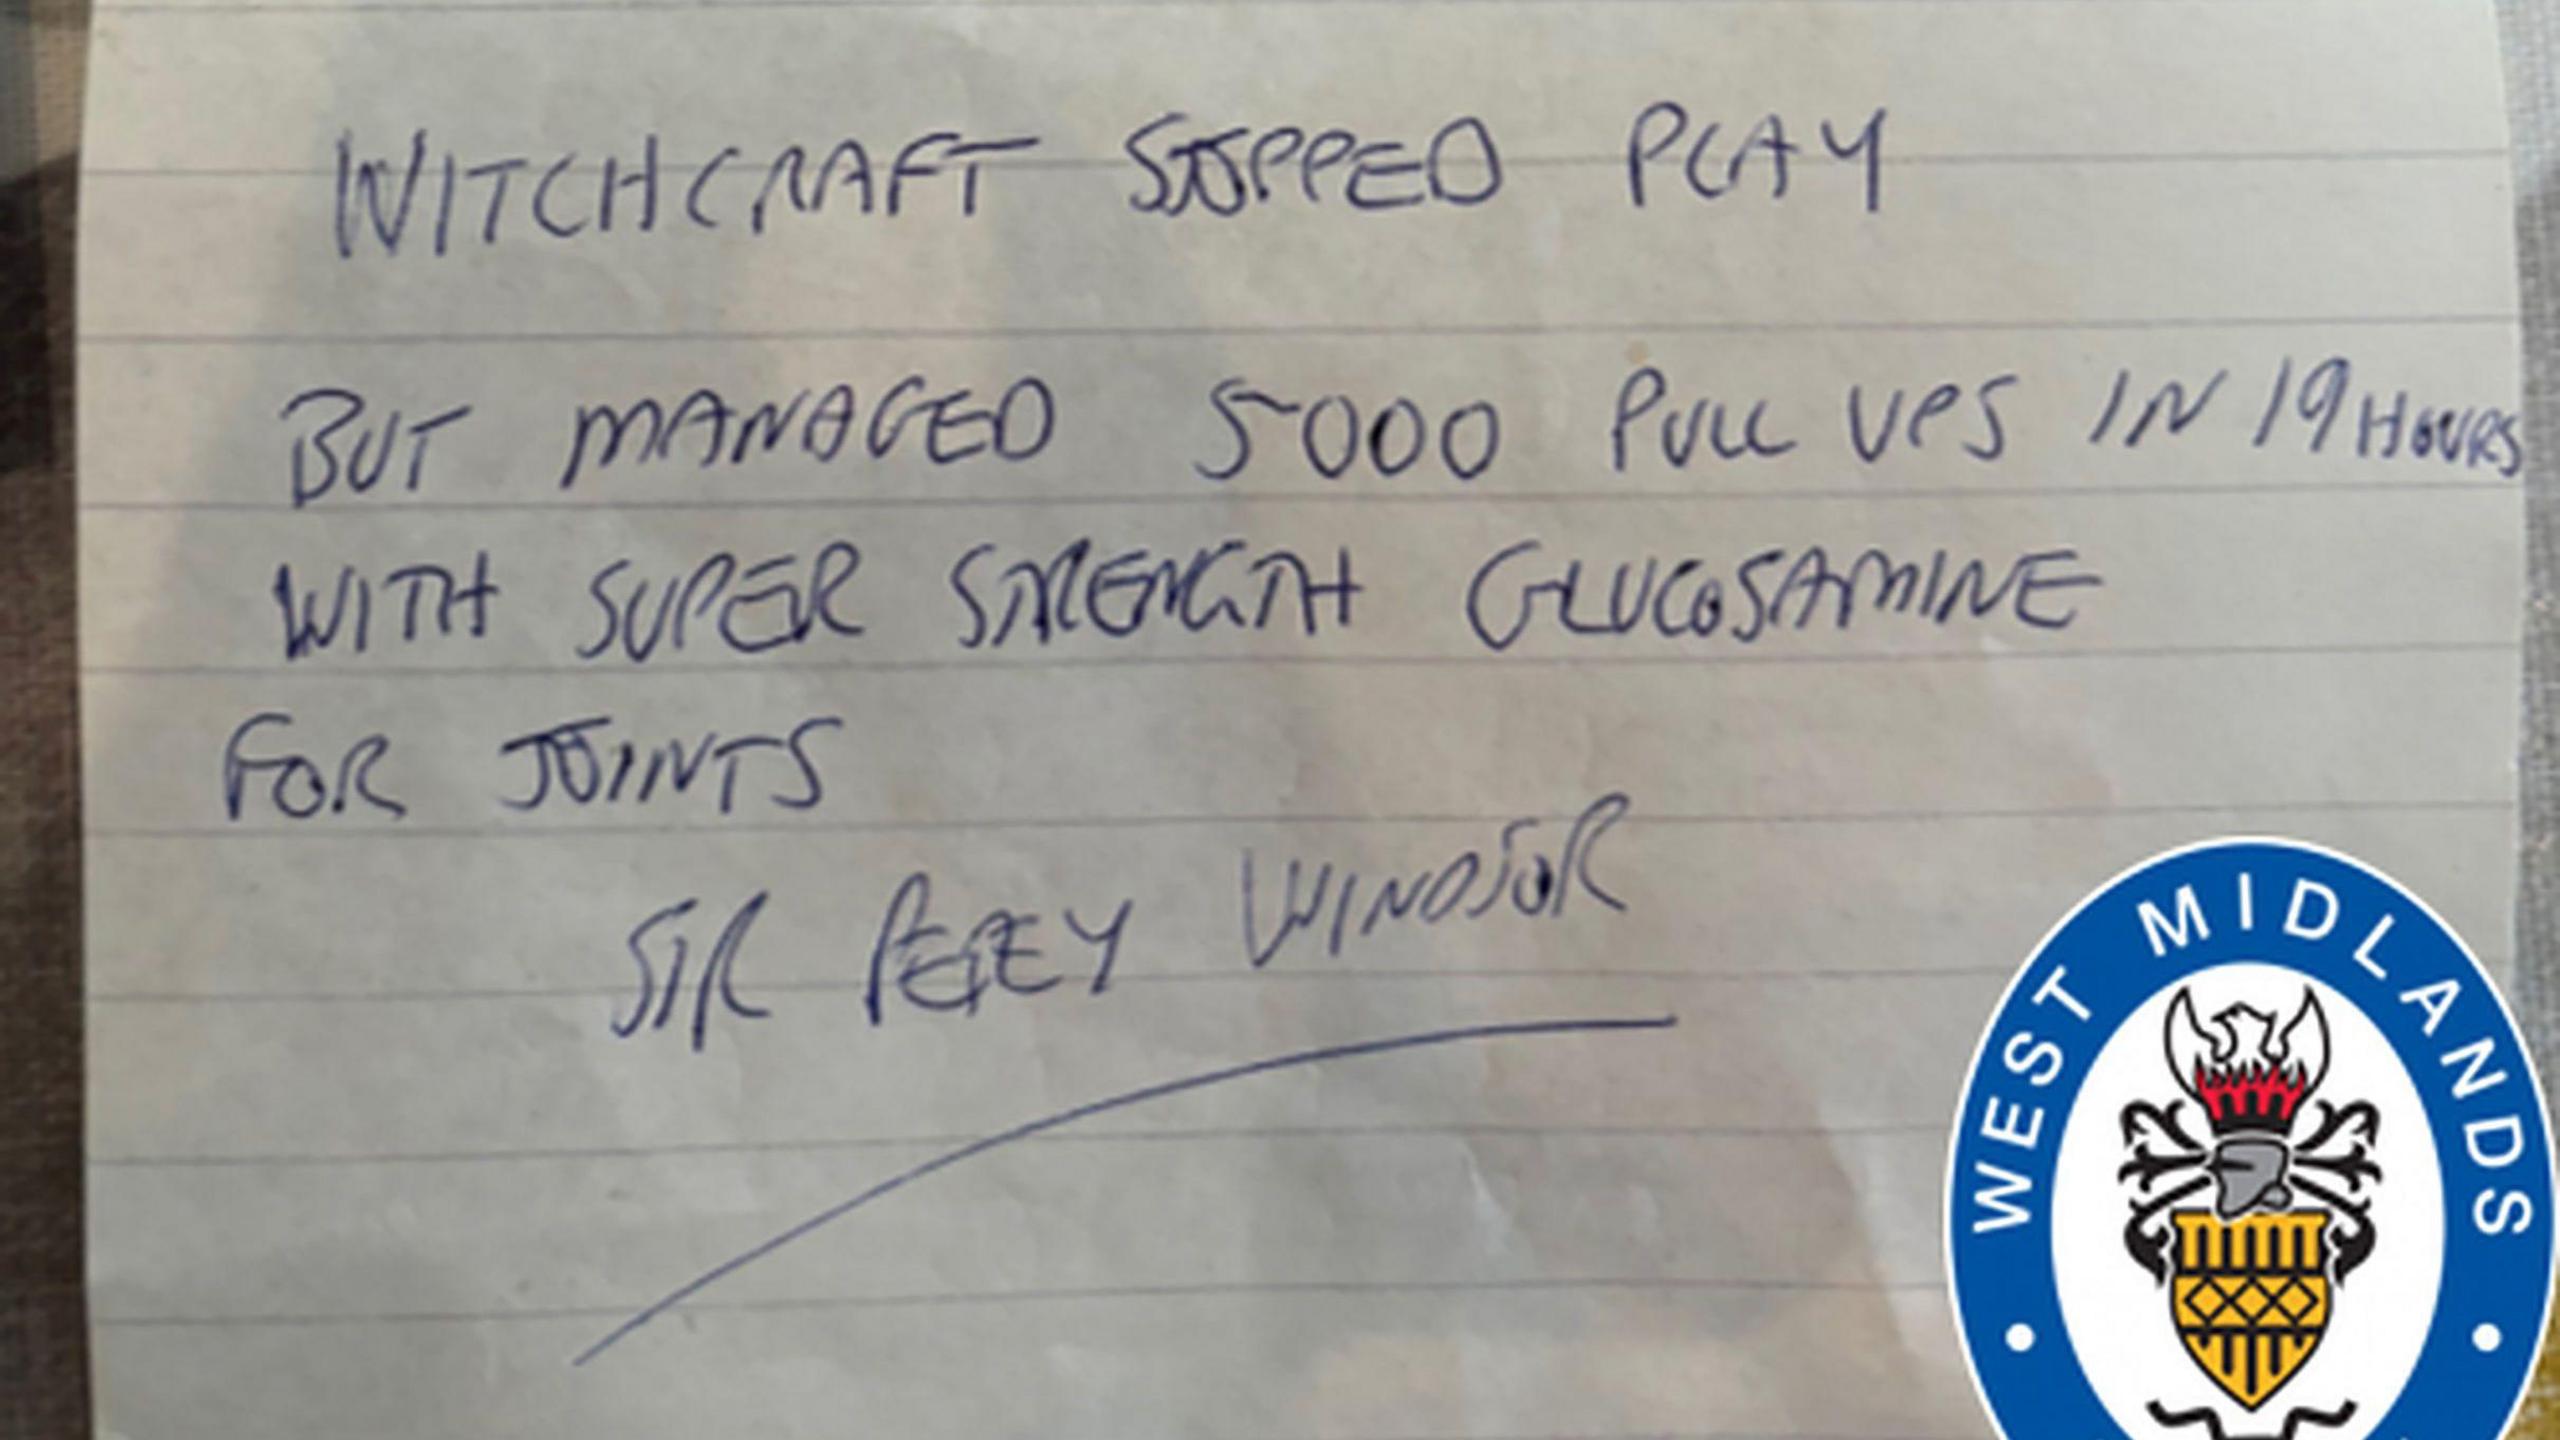 WITCHCRAFT STOPPED PLAY
BUT MANAGED 5000 PULL UPS IN 19 HOURS
WITH SUPER STRENGTH GLUCOSAMINE
FOR JOINTS
SIR PERCY WINDSOR
WEST MIDLANDS